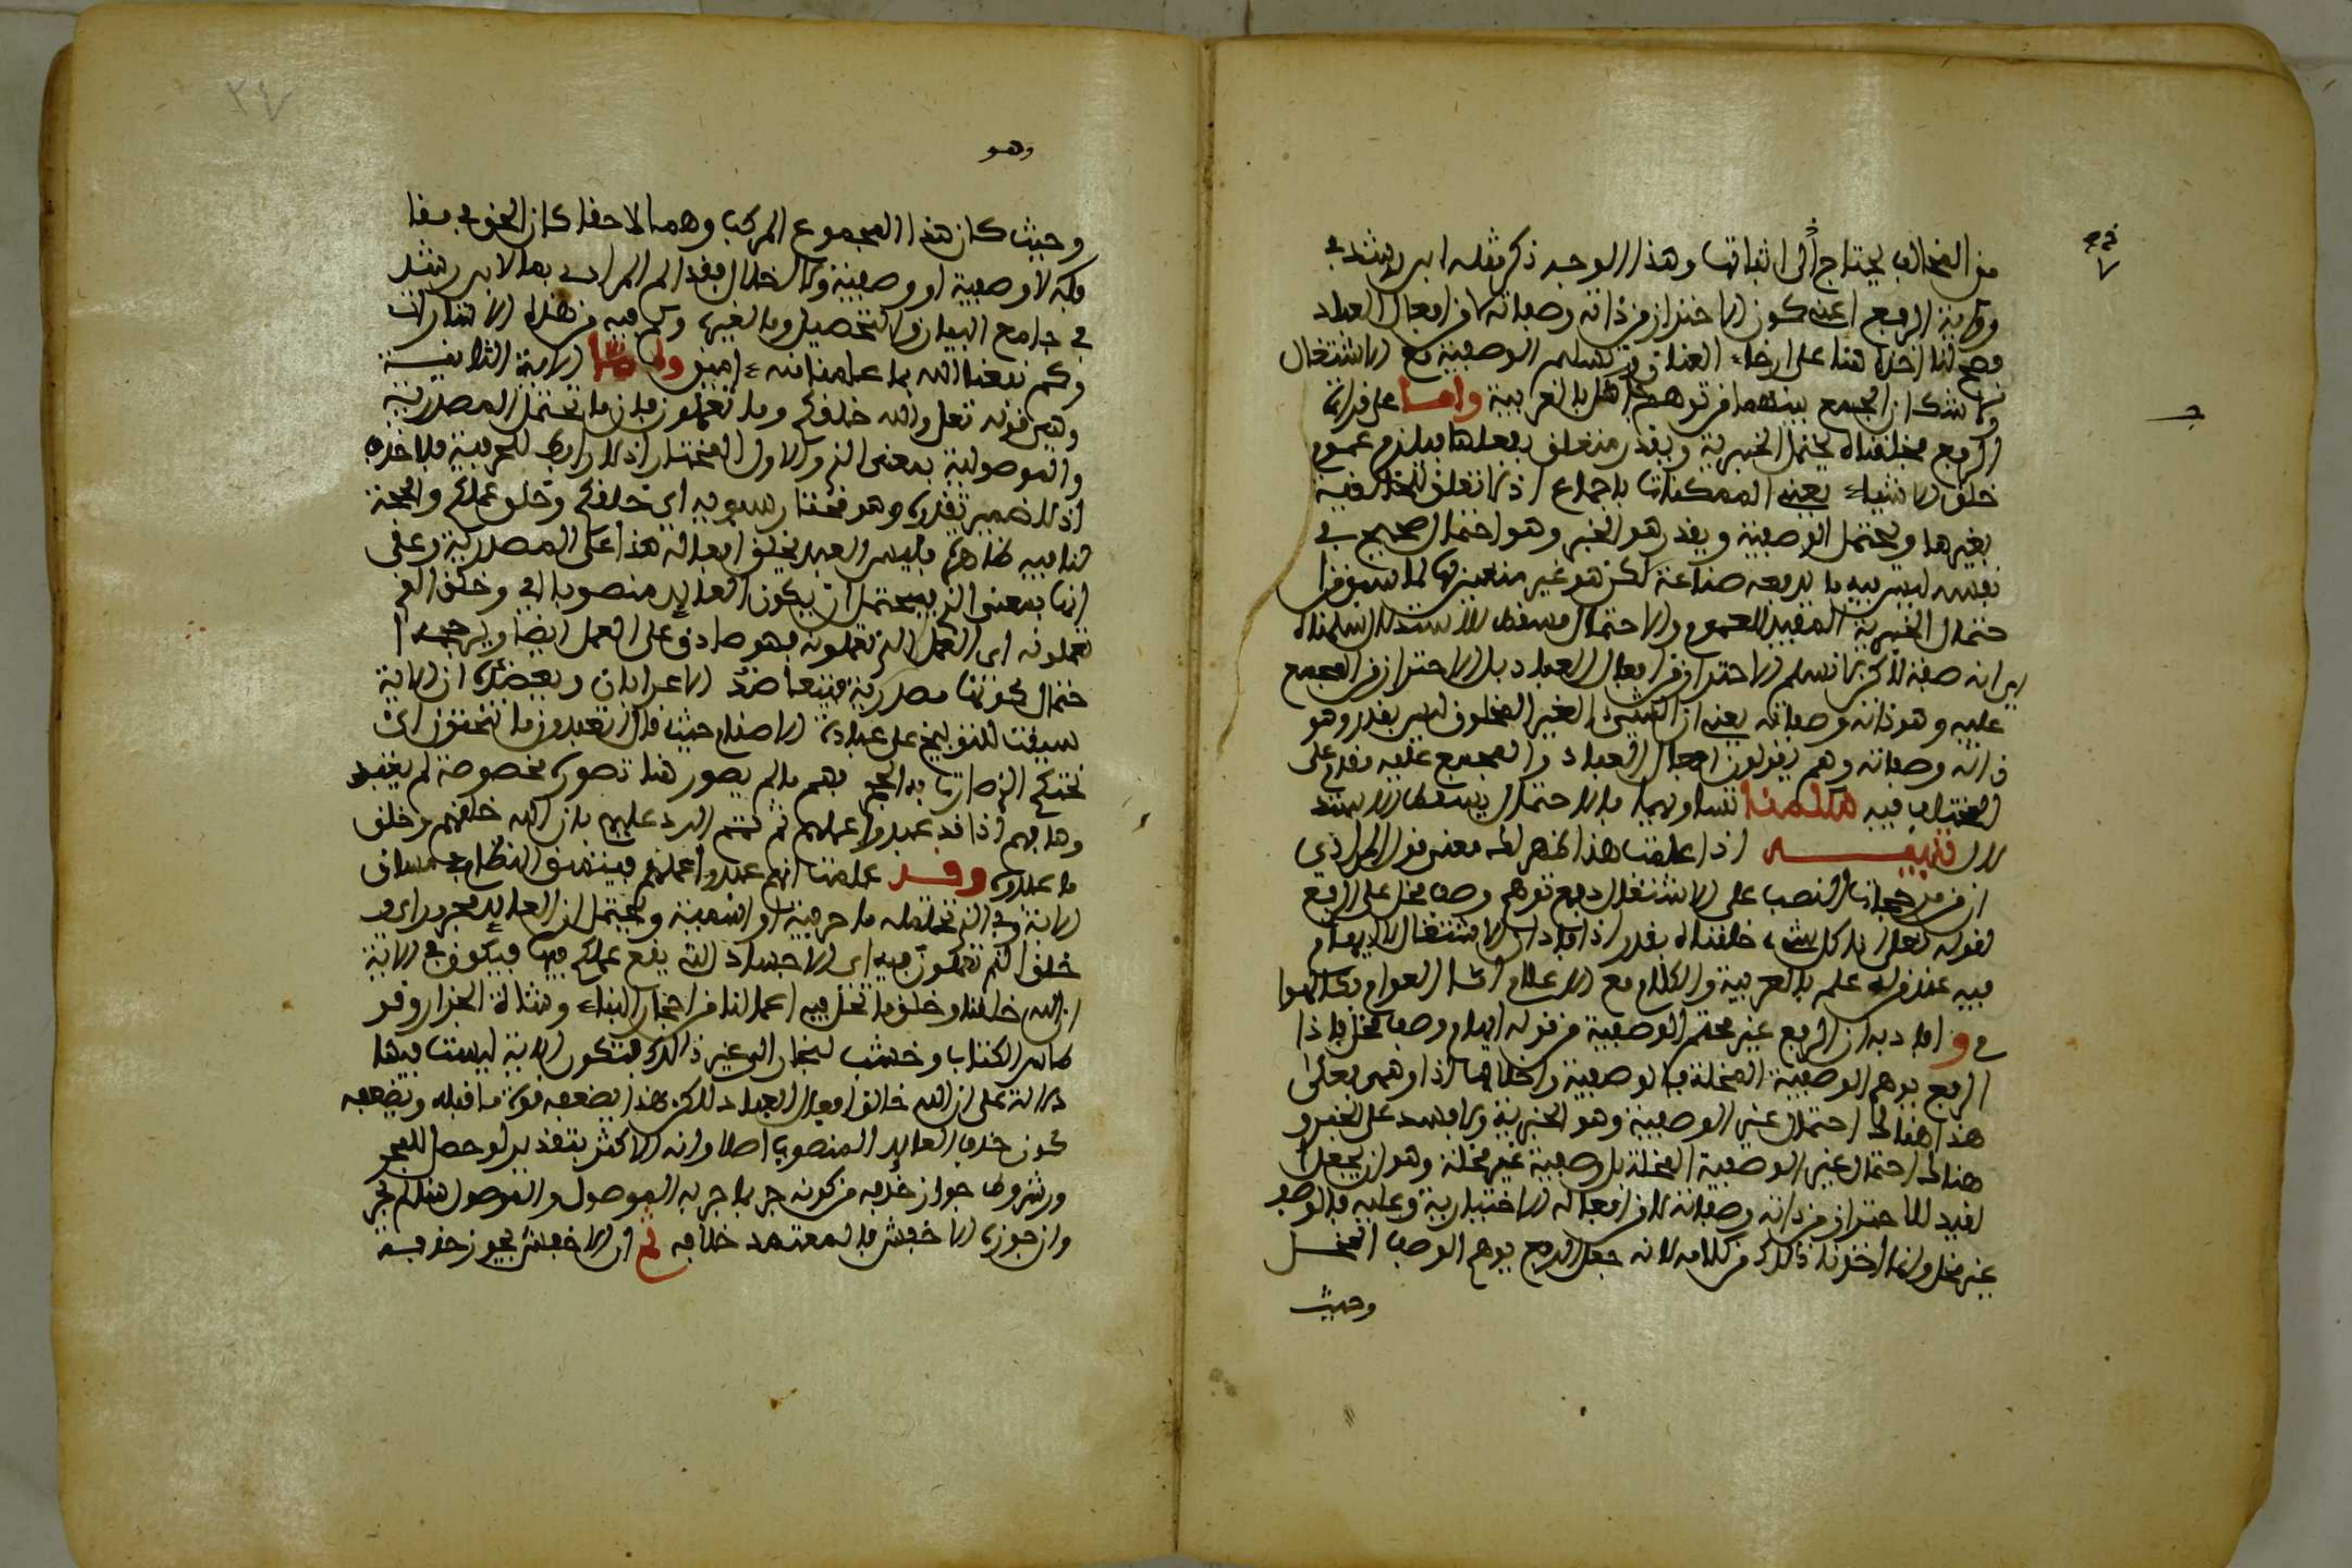 من المخالف يحتاج الى اثباتها وهذا الوجه ذكر مثله ابن رشد في
وقراءة الرفع اعني كون الاحتراز من ذاته وصفاته لا من افعال العباد
وصح لنا اخذه هنا على ارخاء العنان وتسليم الوصفية مع الاشتغال
ولا شك ان الجمع بينهما من توهم جاهل بالعربية واما على قراءة
الرفع فخلقناه يحتمل الخبرية وبقدر متعلق بفعلها فيلزم عموم
خلق الاشياء يعني الممكنات باجماع اذ لا تعلق للخالقية
بغيرها ويحتمل الوصفية وبقدر هو الخبر وهو احتمال صحيح في
نفسه ليس فيه ما يدفعه صناعة لكن هو غير متعين لها لما سبق من ا
حتمال الخبرية المفيد للعموم والاحتمال مسقط للاستدلال سلمنا
انه صفة لاكن لا نسلم الاحتراز من افعال العباد بل الاحتراز من المجمع
عليه وهو ذاته وصفاته يعني ان الشيء الغير المخلوق ليس بقدر وهو
ذاته وصفاته وهم يقولون افعال العباد والمجمع عليه مقدم على
المختلف فيه سلمنا تساويهما فالاحتمال يسقط الاستد
لال تنبيه اذا علمت هذا ظهر لك معنى قول المرادي
ان من مرجحات النصب على الاشتغال دفع توهم وصف مخل على الرفع
لقوله تعالى انا كل شيء خلقناه بقدر اذ افاد ان الاشتغال لا ايهام
فيه عند من له علم بالعربية والكلام مع الاعلام اما العوام فكالهوا
م وافاد به ان الرفع غير محتم الوصفية من قوله ايهام وصف مخل فاذا
الرفع يوهم الوصفية المخلة فالوصفية واخلالها اذا وهمي فعلى
هذا هناك احتمال غير الوصفية وهو الخبرية ولا يفسد على الخبر و
هناك احتمال غير الوصفية المخلة بل وصفية غير مخلة وهو ان يجعل ا
لقيد للاحتراز من ذاته وصفاته لا من افعاله الاختيارية وعليه فالوصف
غير مخل وانما اخذنا ذلك من كلامه لانه جعل الرفع يوهم الوصف المخل
وحيث
وهو
وحيث كان هذا المجموع المركب وهما لا حقا كان الحق في مقا
بله لا وصفية او وصفية ولا اخلال فقد الم المرادي بما لابن رشد
في جامع البيان والتحصيل وما لغيره وكم فيه من هذه الاشارات
وكم نفعنا الله بما علمنا منه امين واما الاية الثانية
وهي قوله تعلى والله خلقكم وما تعملون فان ما تحتمل المصدرية
والموصولية بمعنى الذي والاول المختار اذ لا رابط للحرفية فلا حذف
اذ لا ضمير تقديره وهو مختار سيبويه اي خلقكم وخلق عملكم والحجة
لنا فيه ظاهرة فليس العبد يخلق افعاله هذا على المصدرية وعلى
انها بمعنى الذي يحتمل ان يكون العايد منصوبا اي وخلق الذي
تعملونه اي العمل الذي تعملونه فهو صادق على العمل ايضا ويرجحه ا
حتمال كونها مصدرية فيتعاضد الاعرابان ويعضده ان الاية
سيقت للتوبيخ على عبادة الاصنام حيث قال اتعبدون ما تنحتون اي
نحتكم الذي صار به الحجر فهم ما لم يصور هنا تصورة مخصوصة لم يعبد
وها فهم اذا قد عبدوا عملهم ثم تمم الرد عليهم بان الله خلقهم وخلق
ما عبدوه وقد علمت انهم عبدوا عملهم فيتمشى النظام في مساق
الاية وفي الذي تحتمله ما حرفية او اسمية ويحتمل ان العايد مجرور اي و
خلق الذي تعملون فيه اي الاجساد التي يقع عملكم فيها فيكون في الاية
ان الله خلقنا وخلق ما نحل فيه اعمالنا من احجار البناء وشاة الجزار وقر
طاس الكتاب وخشب النجار الى غير ذلك فتكون الاية ليست فيها
دلالة على ان الله خالق افعال العباد لاكن هذا يضعفه قوة ما قبله ويضعفه
كون حذف العايد المنصوب اصلا وانه الاكثر بتقدير لو حصل للمجر
ور شروط جواز حذفه من كونه جر بما جر به الموصول والموصول هنا لم يجر
وان جوزه الاخفش فالمعتمد خلافه ثم ان الاخفش يجوز حذفه